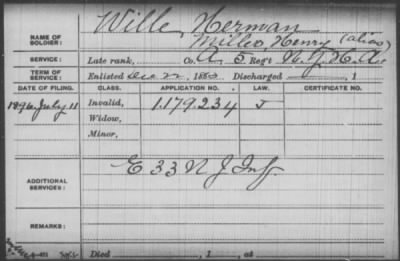 NAME OF SOLDIER: Wille, Herman
Miller, Henry (alias)
SERVICE: Late rank, Co. A, 5 Reg't N.Y.H.A.
TERM OF SERVICE: Enlisted Dec 22, 1863 Discharged , 1
DATE OF FILING. CLASS. APPLICATION NO. LAW. CERTIFICATE NO.
1896, July 11 Invalid, 1.179.234 J
Widow,
Minor,
ADDITIONAL SERVICES: E 33 N J Inf.
REMARKS:
Died , 1 , at